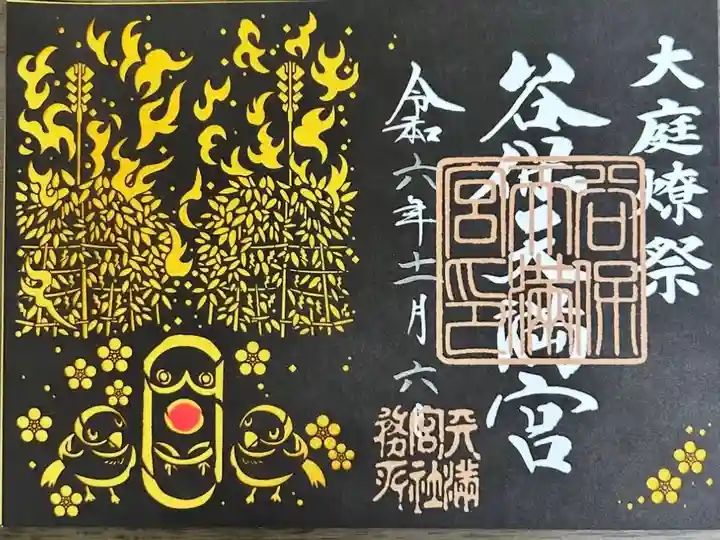 大庭燎祭
谷保天満宮
令和六年十一月六日
谷保天満宮印
天満宮社務所